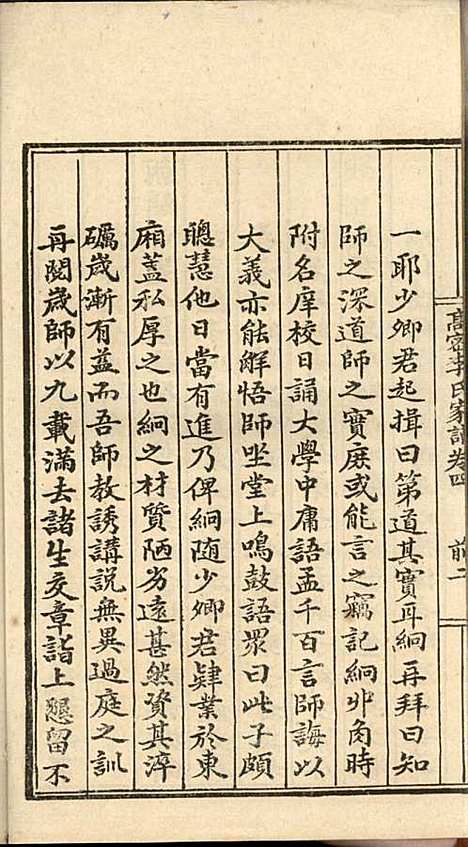 高密李氏家譜卷四　前二
一耶少卿君起揖曰第道其實耳絅再拜曰知
師之深道師之實庶或能言之竊記絅丱角時
附名庠校日誦大學中庸語孟千百言師誨以
大義亦能解悟師坐堂上鳴鼓語眾曰此子頗
聰慧他日當有進乃俾絅随少卿君肄業於東
廂蓋私厚之也絅之材質陋劣遠甚然資其淬
礪歲漸有益而吾師教誘講説無異過庭之訓
再閱歲師以九載滿去諸生交章詣上懇留不